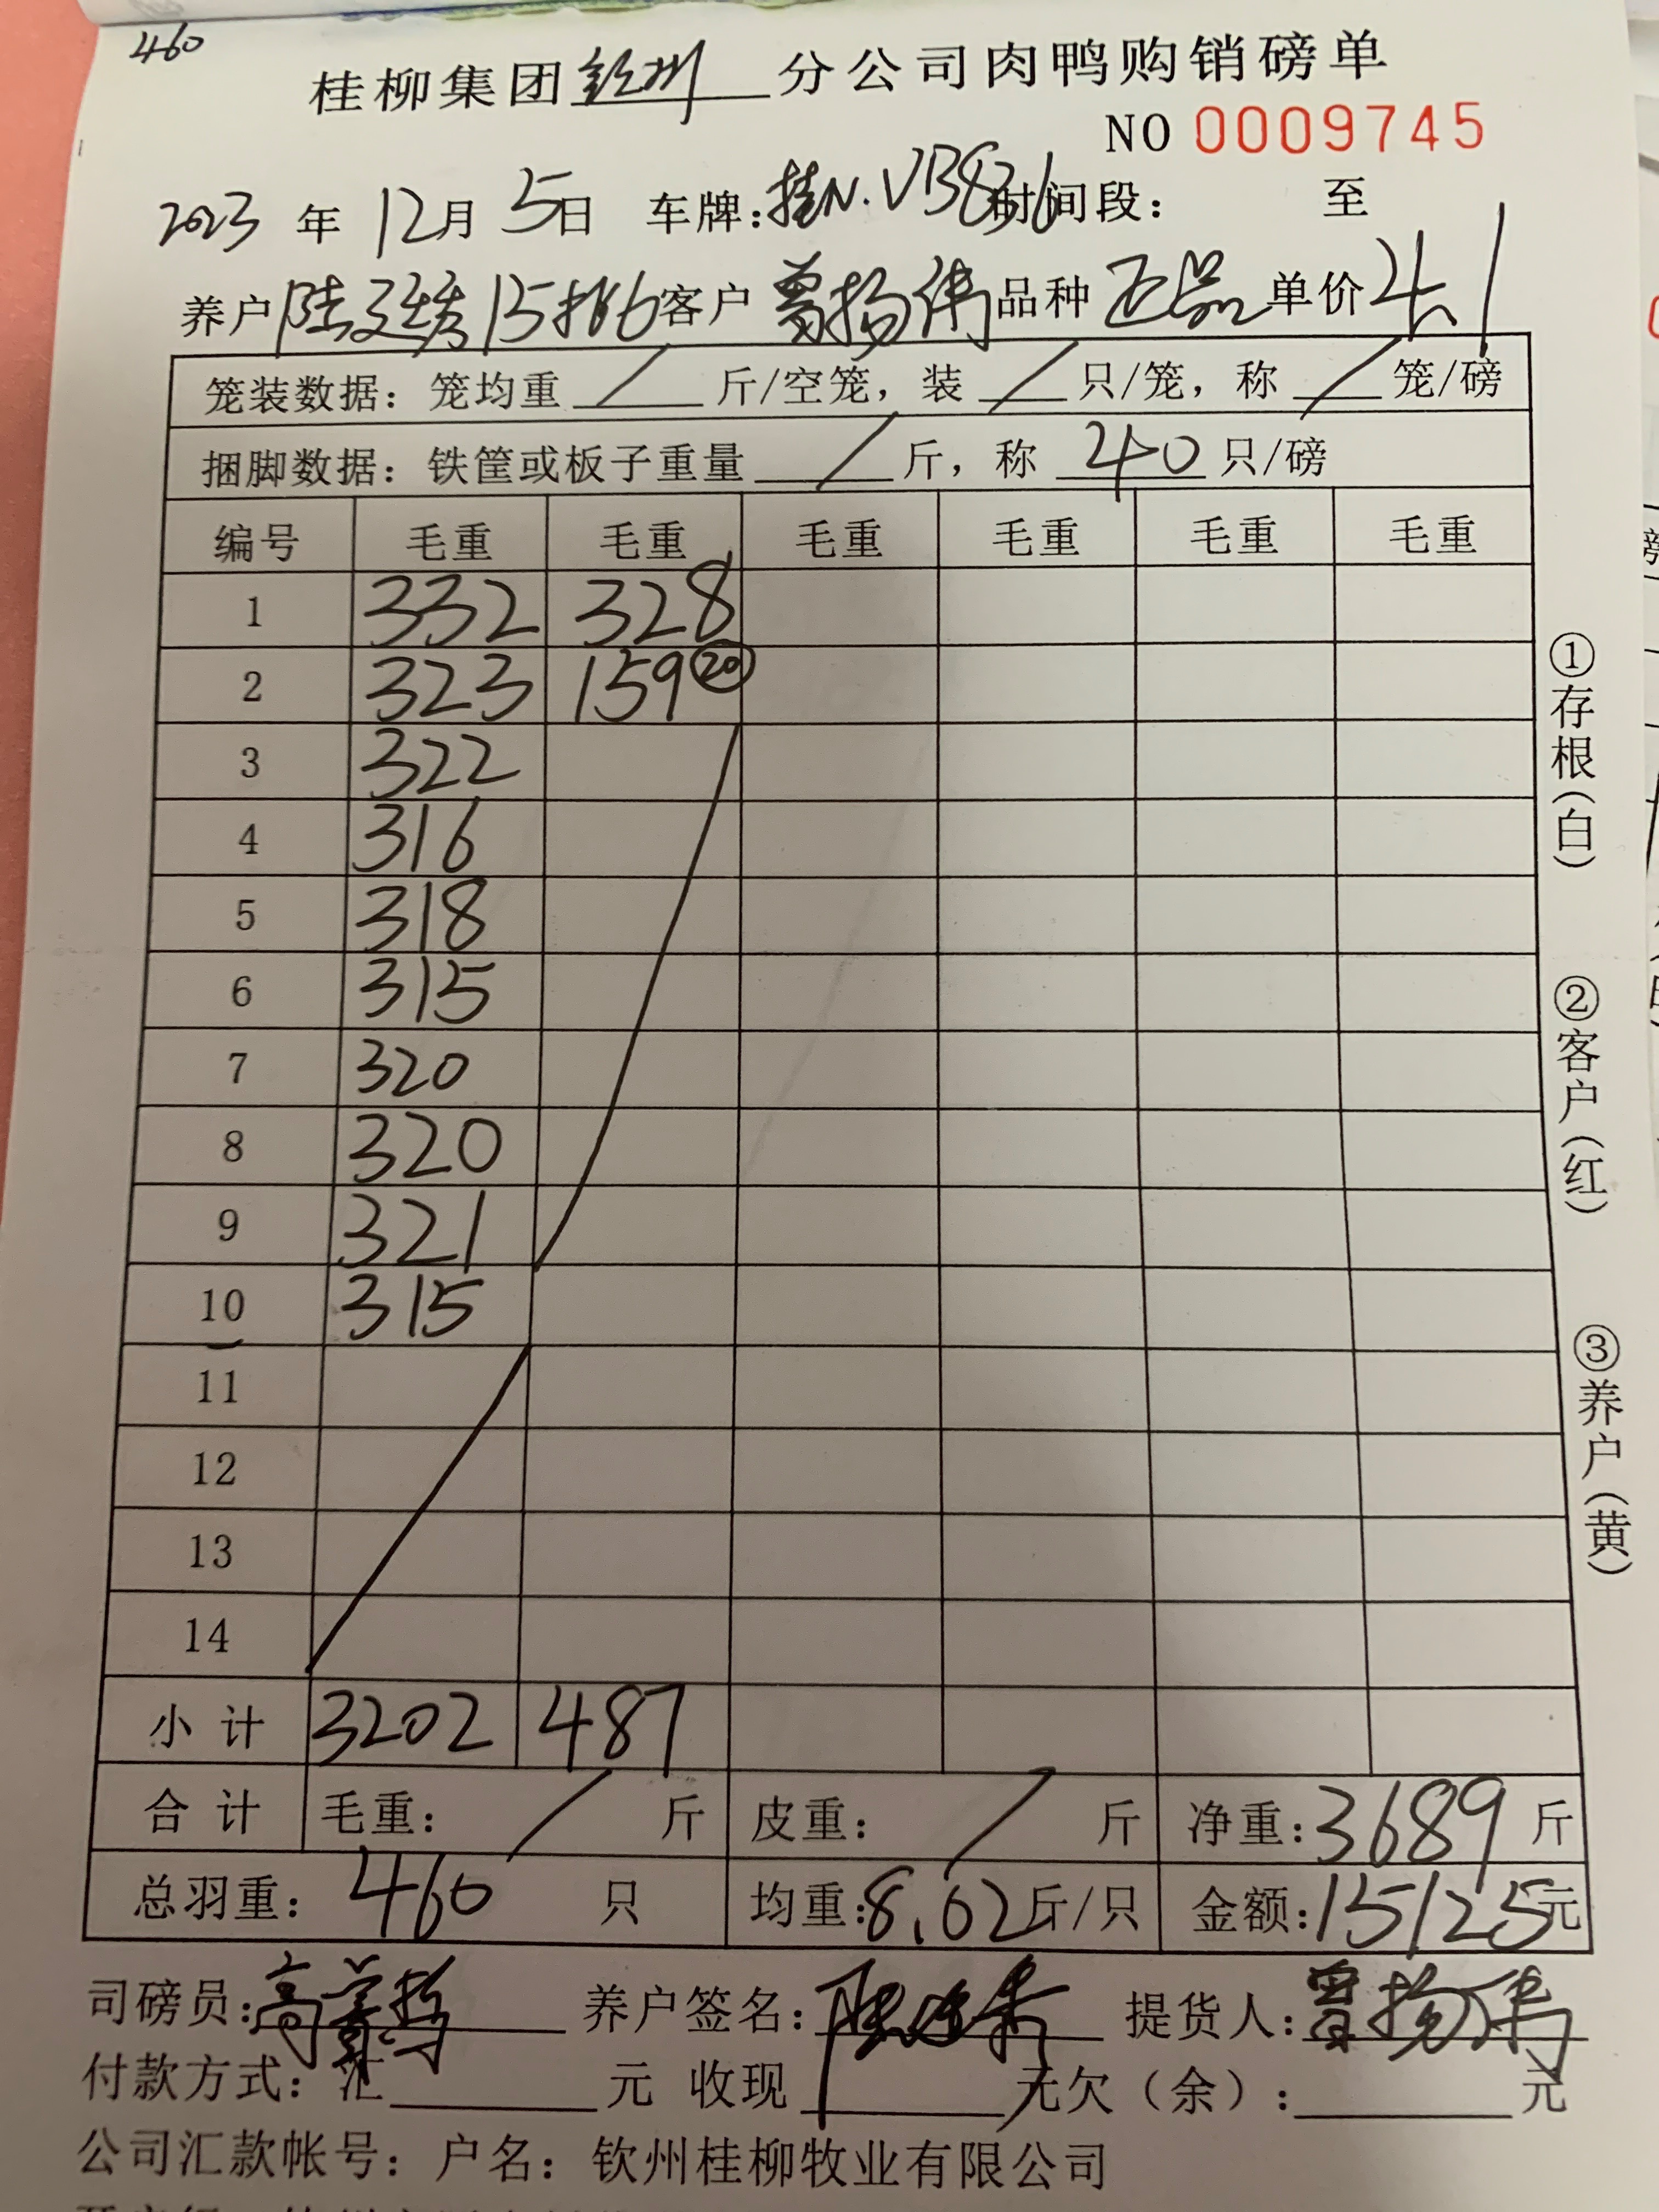 460
桂柳集团钦州分公司肉鸭购销磅单
NO 0009745
2023 年 12月 5日 车牌:桂N.VB836 时间段: 至
养户 陆 15 客户 曾扬伟 品种 正品 单价 4.1
笼装数据: 笼均重 / 斤/空笼, 装 / 只/笼, 称 / 笼/磅
捆脚数据: 铁筐或板子重量 / 斤, 称 40 只/磅
编号 毛重 毛重 毛重 毛重 毛重 毛重
1 332 328
2 323 159 ⑳
3 322
4 316
5 318
6 315
7 320
8 320
9 321
10 315
11
12
13
14
小计 3202 487
合计 毛重: / 斤 皮重: / 斤 净重:3689 斤
总羽重: 460 只 均重:8.02斤/只 金额:15125元
司磅员:高 养户签名: 提货人:曾扬伟
付款方式: 汇 元 收现 元欠(余): 元
公司汇款帐号: 户名: 钦州桂柳牧业有限公司
①存根(白)
②客户(红)
③养户(黄)